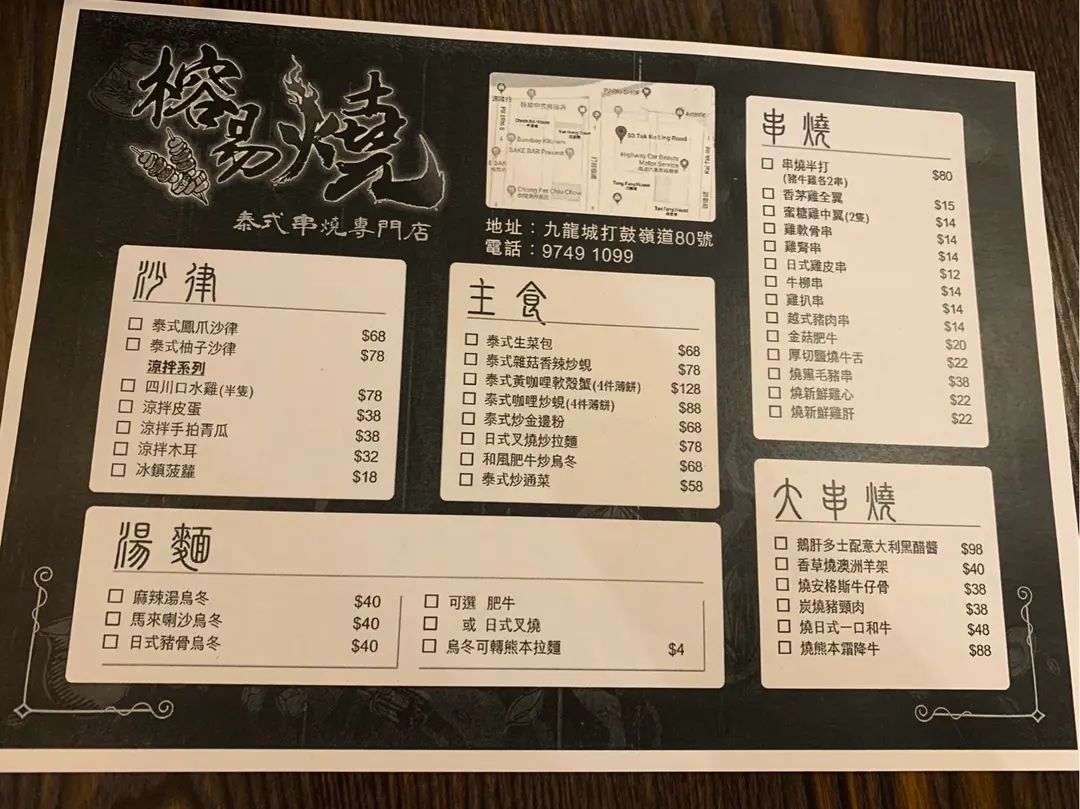 榕易燒
泰式串燒專門店
80 Tak Ku Ling Road
Highway Car Beauty
Motor Service
Bombay Kitchen
BAKE BAR Present
Tung Fung House
Chong Fat Chiu Chow
地址：九龍城打鼓嶺道80號
電話：9749 1099
沙律
泰式鳳爪沙律 $68
泰式柚子沙律 $78
涼拌系列
四川口水雞(半隻) $78
涼拌皮蛋 $38
涼拌手拍青瓜 $38
涼拌木耳 $32
冰鎮菠蘿 $18
主食
泰式生菜包 $68
泰式雜菇香辣炒蜆 $78
泰式黃咖哩軟殼蟹(4件薄餅) $128
泰式咖哩炒蜆(4件薄餅) $88
泰式炒金邊粉 $68
日式叉燒炒拉麵 $78
和風肥牛炒烏冬 $68
泰式炒通菜 $58
湯麵
麻辣湯烏冬 $40
馬來喇沙烏冬 $40
日式豬骨烏冬 $40
可選 肥牛
或 日式叉燒
烏冬可轉熊本拉麵 $4
串燒
串燒半打 $80
(豬牛雞各2串)
香茅雞全翼 $15
蜜糖雞中翼(2隻) $14
雞軟骨串 $14
雞腎串 $14
日式雞皮串 $12
牛柳串 $14
雞扒串 $14
越式豬肉串 $14
金菇肥牛 $20
厚切鹽燒牛舌 $22
燒黑毛豬串 $38
燒新鮮雞心 $22
燒新鮮雞肝 $22
大串燒
鵝肝多士配意大利黑醋醬 $98
香草燒澳洲羊架 $40
燒安格斯牛仔骨 $38
炭燒豬頸肉 $38
燒日式一口和牛 $48
燒熊本霜降牛 $88